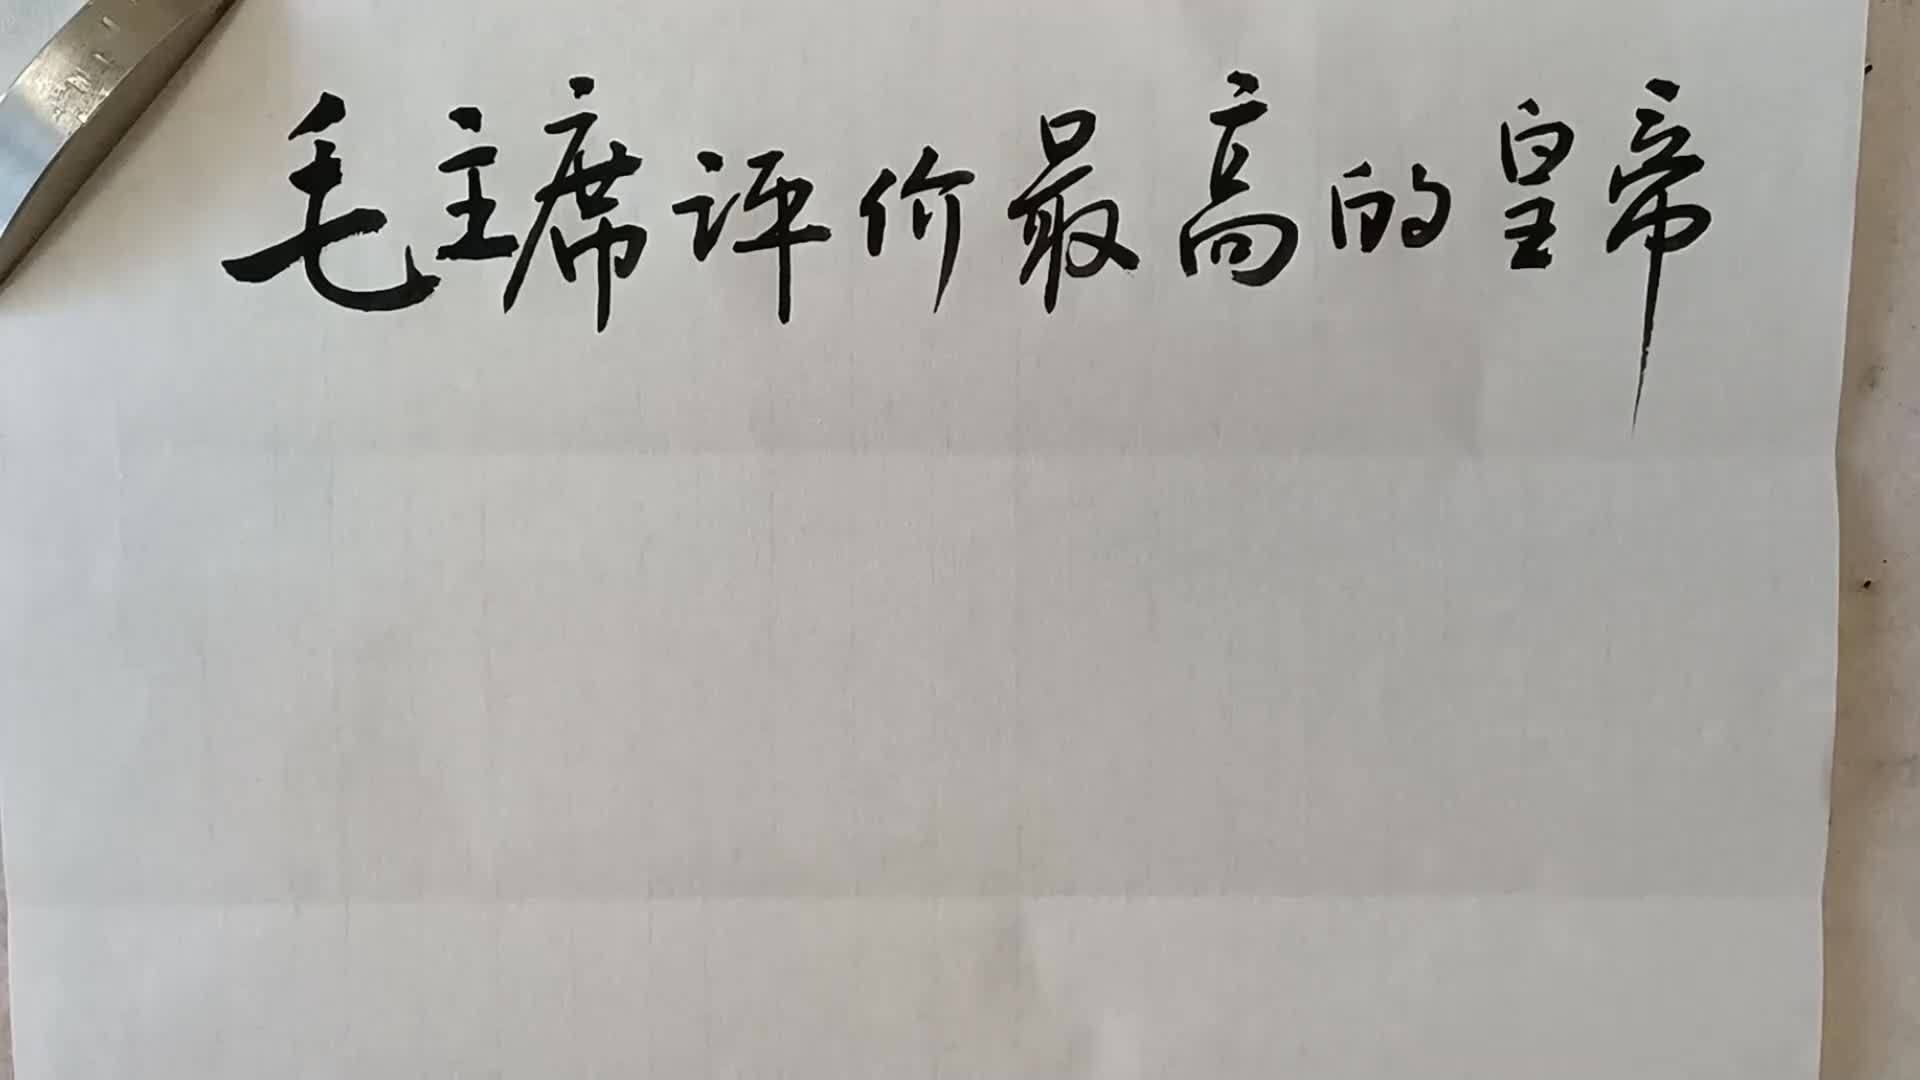 毛主席评价最高的皇帝